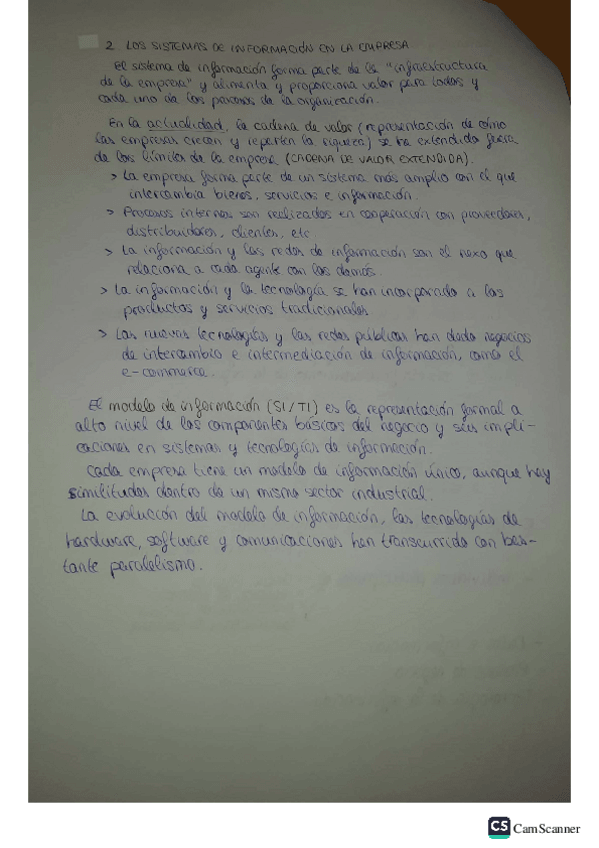 2. LOS SISTEMAS DE INFORMACIÓN EN LA EMPRESA
El sistema de información forma parte de la "infraestructura
de la empresa" y alimenta y proporciona valor para todos y
cada uno de los procesos de la organización.
En la actualidad, la cadena de valor (representación de cómo
las empresas crean y reparten la riqueza) se ha extendido fuera
de los límites de la empresa (CADENA DE VALOR EXTENDIDA).
> La empresa forma parte de un sistema más amplio con el que
intercambia bienes, servicios e información.
> Procesos internos son realizados en cooperación con proveedores,
distribuidores, clientes, etc
> La información y las redes de información son el nexo que
relaciona a cada agente con los demás.
> La información y la tecnología se han incorporado a los
productos y servicios tradicionales
> Las nuevas tecnologías y las redes públicas han dado negocios
de intercambio e intermediación de información, como el
e-commerce.
El modelo de información (SI/TI) es la representación formal a
alto nivel de los componentes básicos del negocio y sus impli-
caciones en sistemas y tecnologías de información.
Cada empresa tiene un modelo de información único, aunque hay
similitudes dentro de un mismo sector industrial.
La evolución del modelo de información, las tecnologías de
hardware, software y comunicaciones han transcurrido con bas-
tante paralelismo.
CS CamScanner